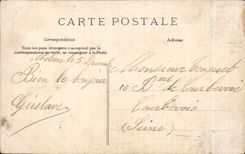 CARTE POSTALE
Correspondance
Adresse
Tous les pays étrangers n'acceptent pas
la correspondance au verso, se renseigner à la Poste
le 5
Bien le bonjour
Gustave
Monsieur
10 Bd de Courbevoie
Courbevoie
(Seine)